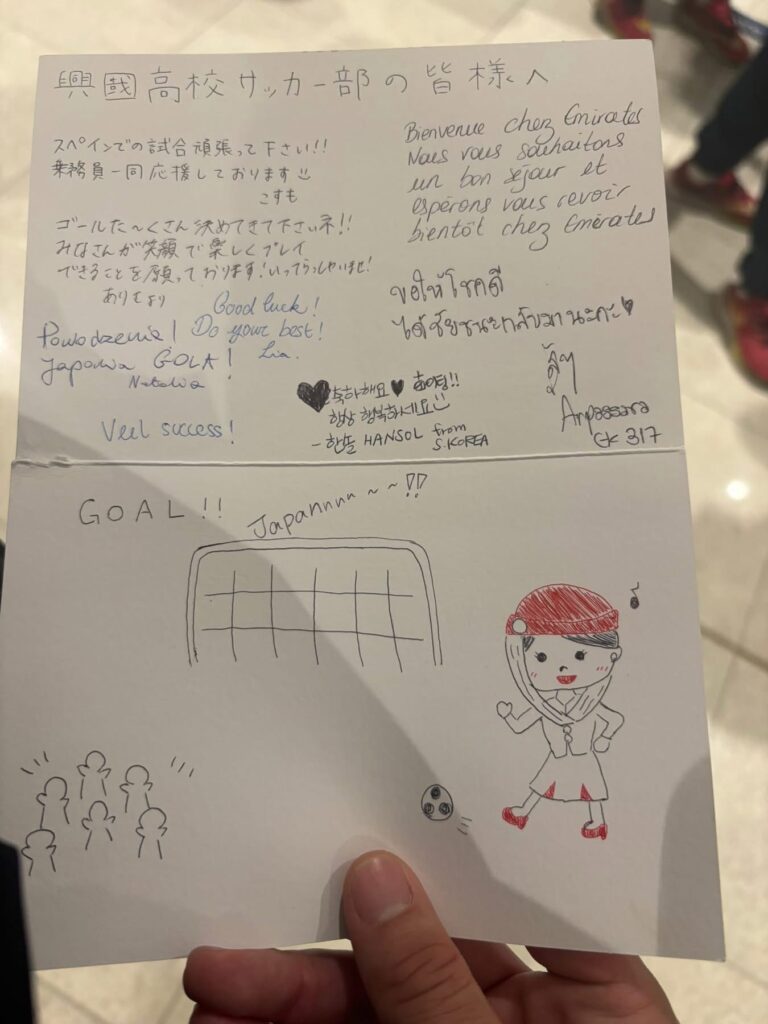 興國高校サッカー部の皆様へ
スペインでの試合頑張って下さい!!
乗務員一同応援しております
こすも
ゴールた〜くさん決めてきて下さいネ!!
みなさんが笑顔で楽しくプレイ
できることを願っております!いってらっしゃいませ!
ありむら
Good luck!
Do your best!
Lia.
Powodzenia!
Japonia GOLA!
Natalia
Veel success!
Bienvenue chez Emirates
Nous vous souhaitons
un bon séjour et
espérons vous revoir
bientôt chez Emirates
ขอให้โชคดี
ได้ชัยชนะกลับมานะคะ
สู้ๆ
Anpassara
GK 317
축하해요 화이팅!!
항상 행복하세요
- 한솔 HANSOL from
S.KOREA
GOAL!!
Japannnn~~!!